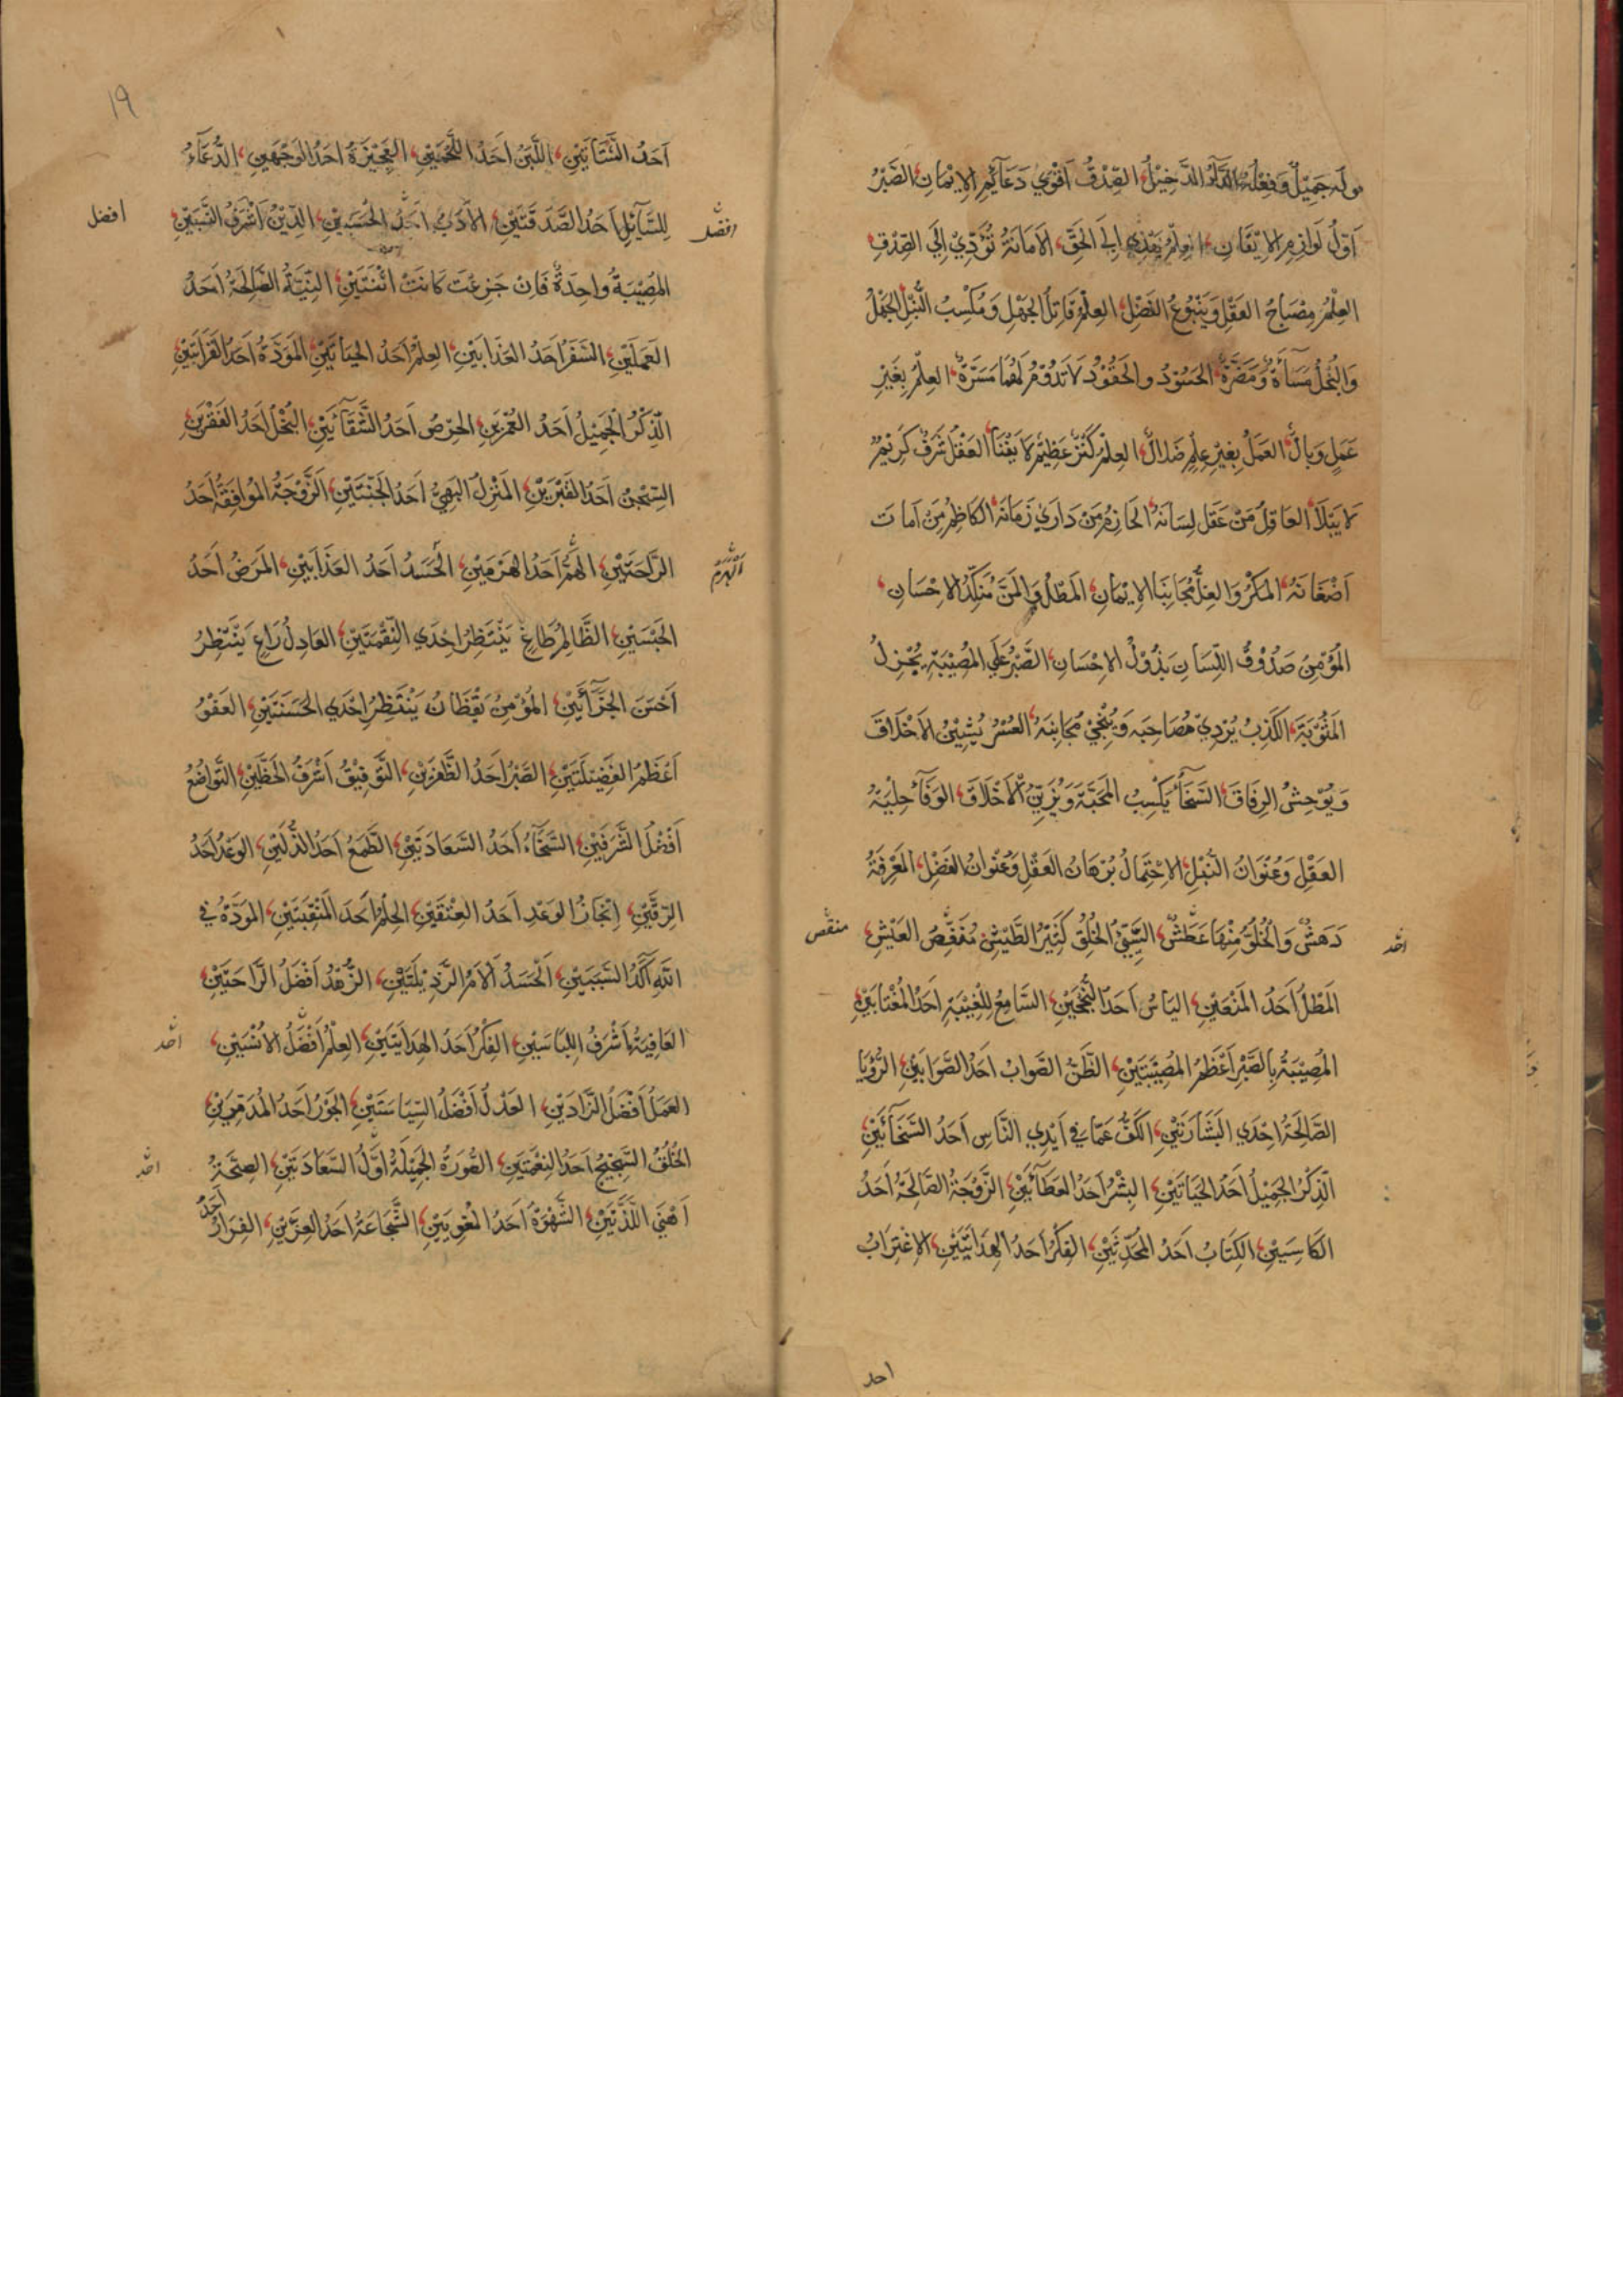 قوله جَمِيْلٌ وَفِعْلُهُ الدَّآءُ الدَّخِيْلُ، الصِّدْقُ اَقْوٰي دَعَآئِمِ الاِيْمَانِ، الصَّبْرُ
اَوَّلُ لَوَازِمِ الاِيْقَانِ، العِلْمُ يَهْدِي اِلَي الحَقِّ، الاَمَانَةُ تُؤَدِّيْ اِلَي الصِّدْقِ
العِلْمُ مِصْبَاحُ العَقْلِ وَيَنْبُوعُ الفَضْلِ، العِلْمُ قَاتِلُ الجَهْلِ وَمُكْسِبُ النُّبْلِ، الجَهْلُ
وَالبُخْلُ مَسَآءَةٌ وَمَضَرَّةٌ، الحَسُوْدُ والحَقُوْدُ لَا تَدُوْمُ لَهُمَا مَسَرَّةٌ، العِلْمُ بِغَيْرِ
عَمَلٍ وَبَالٌ، العَمَلُ بِغَيْرِ عِلْمٍ ضَلَالٌ، العِلْمُ كَنْزٌ عَظِيْمٌ لَا يَفْنَا، العَقْلُ شَرَفٌ كَرِيْمٌ
لَا يَبْلَا، العَاقِلُ مَنْ عَقَلَ لِسَانَهُ، الحَازِمُ مَنْ دَارَي زَمَانَهُ، الكَاظِمُ مَنْ اَمَاتَ
اَضْغَانَهُ، المَكْرُ وَالغِلُّ مُجَانِبَا الاِيْمَانِ، المَطْلُ وَالمَنُّ مُنَكِّدُ الاِحْسَانِ،
المُؤْمِنُ صَدُوْقُ اللِّسَانِ بَذُوْلُ الاِحْسَانِ، الصَّبْرُ عَلَي المُصِيْبَةِ يُجْزِلُ
المَثُوْبَةَ، الكَذِبُ يُرْدِيْ مُصَاحِبَه وَيُنْجِيْ مُجَانِبَهُ، العُسْرُ يُشِيْنُ الاَخْلَاقَ
وَيُوْحِشُ الرِفَاقَ، السَّخَآءُ يَكْسِبُ المَحَبَّةَ وَيُزَيِّنُ الاَخْلَاقَ، الوَفَآءُ حِلْيَةُ
العَقْلِ وَعُنْوَانُ النُّبْلِ، الاِحْتِمَالُ بُرْهَانُ العَقْلِ وَعُنْوَانُ الفَضْلِ، المَعْرِفَةُ
دَهَشٌ وَالخُلُوُّ مِنْهَا عَطَشٌ، السَّيِّئُ الخُلُقِ كَثِيْرُ الطَّيْشِ مُنَغَّصُ العَيْشِ،
منقص
المَطْلُ اَحَدُ المَنْعَيْنِ، اليَاْسُ اَحَدُ النُّجْحَيْنِ، السَّامِعُ لِلْغِيْبَةِ اَحَدُ المُغْتَابَيْنِ،
المُصِيْبَةُ بِالصَّبْرِ اَعْظَمُ المُصِيْبَتَيْنِ، الظَّنُّ الصَّوَابُ اَحَدُ الصَّوَابَيْنِ، الرُّؤْيَا
الصَّالِحَةُ اِحْدَي البَشَارَتَيْنِ، الكَفُّ عَمَّا فِي اَيْدِي النَّاسِ اَحَدُ السَّخَآئَيْنِ،
الذِّكْرُ الجَمِيْلُ اَحَدُ الحَيَاتَيْنِ، البِشْرُ اَحَدُ العَطَآئَيْنِ، الزَّوْجَةُ الصَّالِحَةُ اَحَدُ
الكَاسِبَيْنِ، الكِتَابُ اَحَدُ المُحَدِّثَيْنِ، الفِكْرُ اَحَدُ الهِدَايَتَيْنِ، الاِغْتِرَابُ
احد
١٩
اَحَدُ الشَّتَاتَيْنِ، اللَّبَنُ اَحَدُ اللَّحْمَيْنِ، العَجِيْزَةُ اَحَدُ الوَجْهَيْنِ، الدُّعَآءُ
لِلسَّآئِلِ اَحَدُ الصَّدَقَتَيْنِ، الاَدَبُ اَحَدُ الحَسَبَيْنِ، الدِّيْنُ اَشْرَفُ النَّسَبَيْنِ،
افضل
افضل
المُصِيْبَةُ وَاحِدَةٌ فَاِنْ جَزِعْتَ كَانَتْ اثْنَتَيْنِ، النِّيَّةُ الصَّالِحَةُ اَحَدُ
العَمَلَيْنِ، السَّفَرُ اَحَدُ العَذَابَيْنِ، العِلْمُ اَحَدُ الحَيَاتَيْنِ، المَوَدَّةُ اَحَدُ القَرَابَتَيْنِ،
الذِّكْرُ الْجَمِيْلُ اَحَدُ العُمْرَيْنِ، الحِرْصُ اَحَدُ الشَّقَآئَيْنِ، البُخْلُ اَحَدُ الفَقْرَيْنِ،
السِّجْنُ اَحَدُ القَبْرَيْنِ، المَنْزِلُ البَهِيُّ اَحَدُ الجَنَّتَيْنِ، الزَّوْجَةُ المُوَافِقَةُ اَحَدُ
الرَّاحَتَيْنِ، الهَمُّ اَحَدُ الهَرَمَيْنِ، الحَسَدُ اَحَدُ العَذَابَيْنِ، المَرَضُ اَحَدُ
الحَبْسَيْنِ، الظَّالِمُ طَاغٍ يَنْتَظِرُ اِحْدَي النِّقْمَتَيْنِ، العَادِلُ رَاعٍ يَنْتَظِرُ
اَحْسَنَ الجَزَآئَيْنِ، المُؤْمِنُ يَقْظَانُ يَنْتَظِرُ اِحْدَي الحَسَنَتَيْنِ، العَفْوُ
اَعْظَمُ الفَضِيْلَتَيْنِ، الصَّبْرُ اَحَدُ الظَّفَرَيْنِ، التَّوْفِيْقُ اَشْرَفُ الحَظَّيْنِ، التَّوَاضُعُ
اَفْضَلُ الشَّرَفَيْنِ، السَّخَآءُ اَحَدُ السَّعَادَتَيْنِ، الطَّمَعُ اَحَدُ الذُّلَّيْنِ، الوَعْدُ اَحَدُ
الرِّقَّيْنِ، اِنْجَازُ الوَعْدِ اَحَدُ العِتْقَيْنِ، الحِلْمُ اَحَدُ المَنْقَبَتَيْنِ، المَوَدَّةُ فِي
اللّٰهِ آكَدُ السَّبَبَيْنِ، الحَسَدُ اَلْاَمُ الرَّذِيْلَتَيْنِ، الزُّهْدُ اَفْضَلُ الرَّاحَتَيْنِ
العَافِيَةُ اَشْرَفُ اللِّبَاسَيْنِ، الفِكْرُ اَحَدُ الهِدَايَتَيْنِ، العِلْمُ اَفْضَلُ الاُنْسَيْنِ،
احد
العَمَلُ اَفْضَلُ الزَّادَيْنِ، العَدْلُ اَفْضَلُ السِّيَاسَتَيْنِ، الجَوْرُ اَحَدُ المُدَمِّرَيْنِ،
الخُلُقُ السَّجِيْحُ اَحَدُ النِّعْمَتَيْنِ، الصُّوْرَةُ الجَمِيْلَةُ اَوَّلُ السَّعَادَتَيْنِ، الصِّحَّةُ
احد
اَهْنَي اللَّذَّتَيْنِ، الشَّهْوَةُ اَحَدُ المُغْوِيَيْنِ، الشَّجَاعَةُ اَحَدُ العِزَّيْنِ، الفِرَارُ اَحَدُ